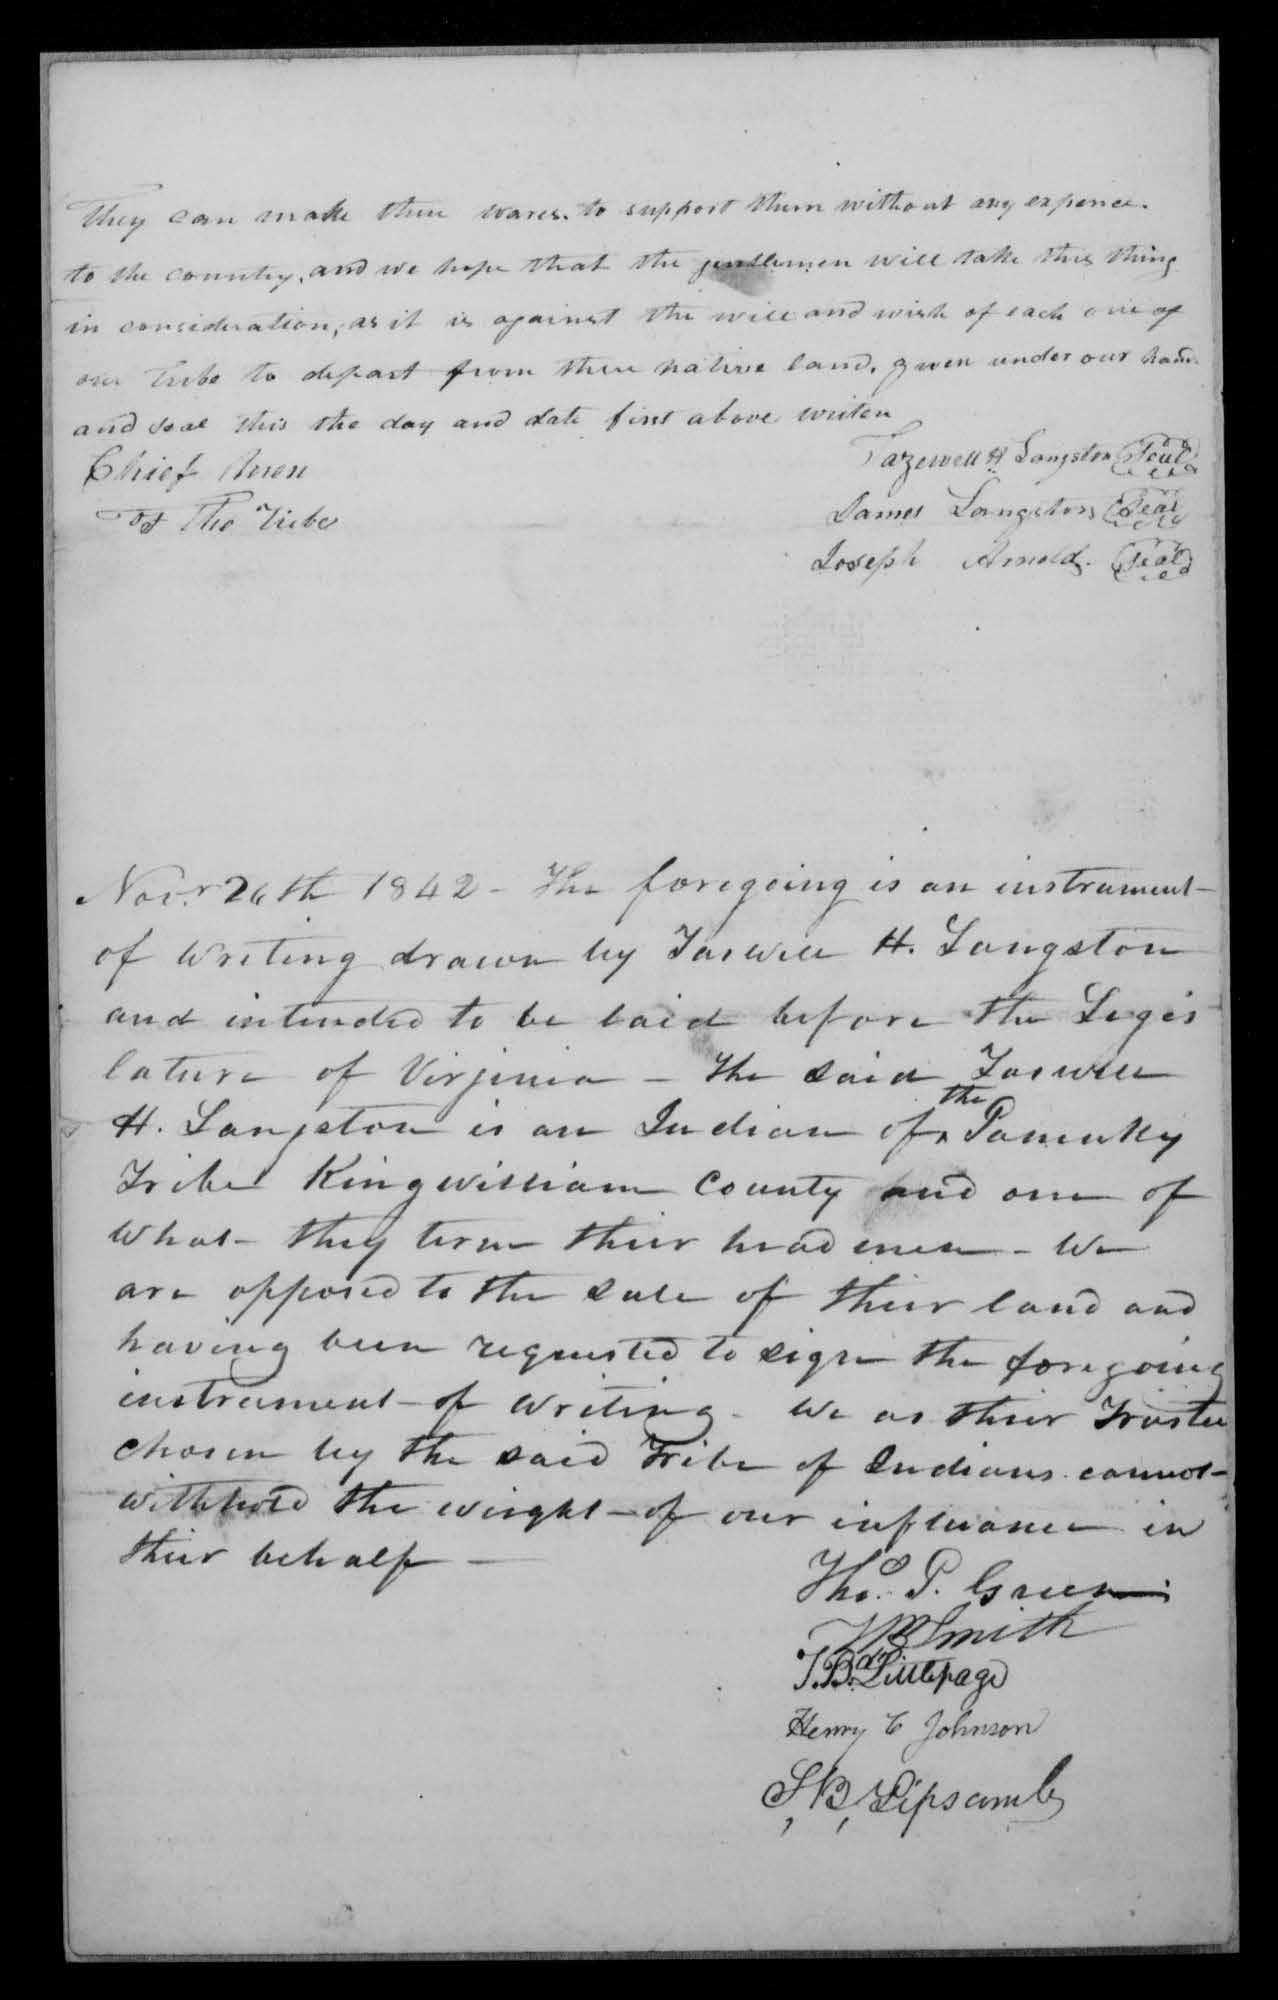 They can make there wares. to support them without any expence.
to the country, and we hope that the gentlemen will take this thing
in consideration, as it is against the will and wish of each one of
our Tribe to depart from there native land. given under our hand
and seal this the day and date first above writen
Chief Men
of The Tribe
Tazewell H Langston Seal
James Langston Seal
Joseph Arnold. Seal
Nov.r 26th 1842 - The foregoing is an instrument
of writing drawn by Taswell H. Langston
and intended to be laid before the Legis
lature of Virginia - The said Taswell
H. Langston is an Indian of the Pamunky
Tribe Kingwilliam County and one of
What they term their head men - We
are opposed to the sale of their land and
having been requested to sign the foregoing
instrument of writing - We as their Trustee
chosen by the said Tribe of Indians cannot
withhold the weight of our influance in
their behalf -
Tho.s P. Green
Smith
T. B. Littlepage
Henry C Johnson
S, B, Lipscomb